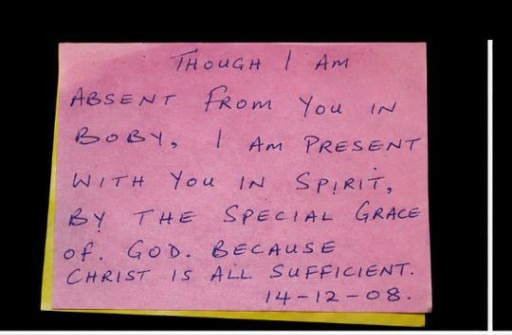 THOUGH I AM
ABSENT FROM YOU IN
BOBY, I AM PRESENT
WITH YOU IN SPIRIT,
BY THE SPECIAL GRACE
Of. GOD. BECAUSE
CHRIST IS ALL SUFFICIENT.
14-12-08.